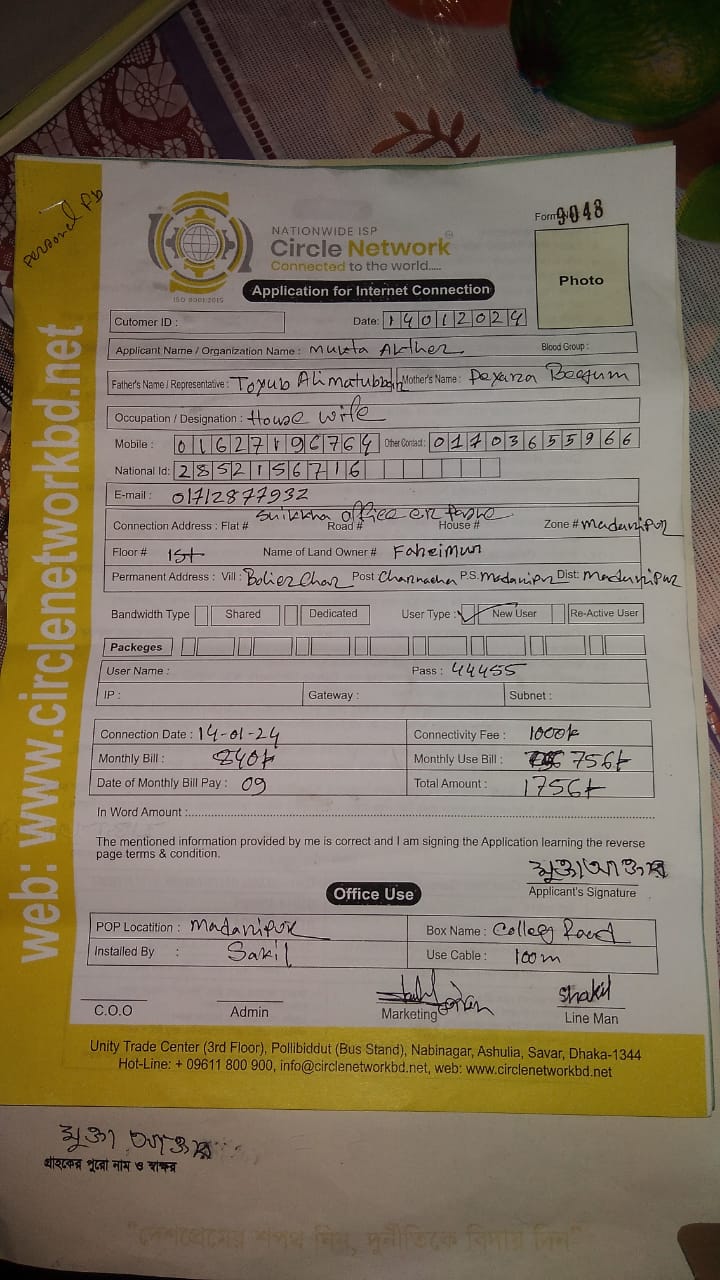 Personal Pb
NATIONWIDE ISP
Circle Network
Connected to the world.....
ISO 9001:2015
Form 9048
Photo
Application for Internet Connection
Cutomer ID : Date: 14012024
Applicant Name / Organization Name : Mukta Akther Blood Group :
Father's Name / Representative : Toyub Ali Mother's Name : Begum
Occupation / Designation : House wife
Mobile : 01627196764 Other Contact : 01703655966
National Id: 2852156716
E-mail : 01712877932
Connection Address : Flat # office er Road # House # Zone # Madaripur
Floor # 1st Name of Land Owner # Faheimun
Permanent Address : Vill : Post P.S. Madaripur Dist: Madaripur
Bandwidth Type Shared Dedicated User Type : New User Re-Active User
Packeges
User Name : Pass : 44455
IP : Gateway : Subnet :
Connection Date : 14-01-24 Connectivity Fee : 1000t
Monthly Bill : 840t Monthly Use Bill : 756t
Date of Monthly Bill Pay : 09 Total Amount : 1756t
In Word Amount :
The mentioned information provided by me is correct and I am signing the Application learning the reverse
page terms & condition.
মুক্তা আক্তার
Applicant's Signature
Office Use
POP Locatition : Madaripur Box Name : Colleg Road
Installed By : Sakil Use Cable : 100m
shakil
C.O.O Admin Marketing Line Man
Unity Trade Center (3rd Floor), Pollibiddut (Bus Stand), Nabinagar, Ashulia, Savar, Dhaka-1344
Hot-Line: + 09611 800 900, info@circlenetworkbd.net, web: www.circlenetworkbd.net
web: www.circlenetworkbd.net
মুক্তা আক্তার
গ্রাহকের পুরো নাম ও স্বাক্ষর
"দেশপ্রেমের শপথ নিন, দুর্নীতিকে বিদায় দিন"